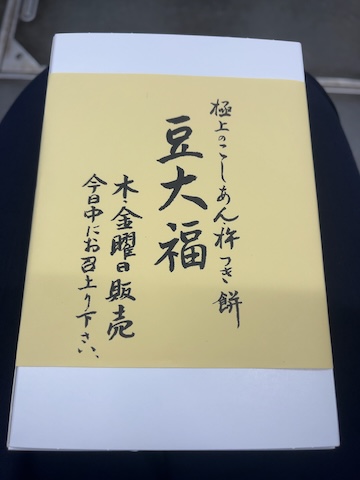 極上のこしあん杵つき餅
豆大福
木・金曜日販売
今日中にお召上り下さい、